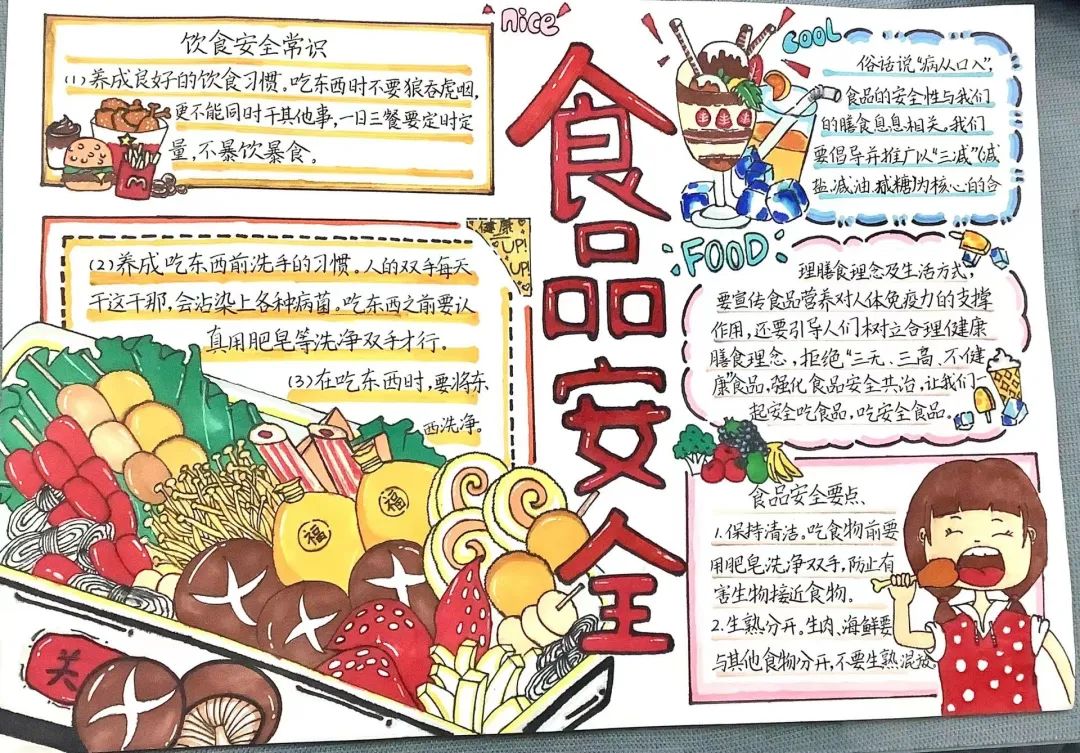 nice
饮食安全常识
(1)养成良好的饮食习惯。吃东西时不要狼吞虎咽,
更不能同时干其他事,一日三餐要定时定
量,不暴饮暴食。
健康
UP!
UP!
(2)养成吃东西前洗手的习惯。人的双手每天
干这干那,会沾染上各种病菌。吃东西之前要认
真用肥皂等洗净双手才行。
(3)在吃东西时,要将东
西洗净。
福
福
关
食品安全
COOL
俗话说“病从口入”,
食品的安全性与我们
的膳食息息相关。我们
要倡导并推广以“三减”(减
盐、减油、减糖)为核心的合
FOOD
理膳食理念及生活方式,
要宣传食品营养对人体免疫力的支撑
作用,还要引导人们树立合理健康
膳食理念,拒绝“三无、三高、不健
康”食品,强化食品安全共治,让我们一
起安全吃食品,吃安全食品。
食品安全要点、
1.保持清洁。吃食物前要
用肥皂洗净双手,防止有
害生物接近食物。
2.生熟分开。生肉、海鲜要
与其他食物分开,不要生熟混放